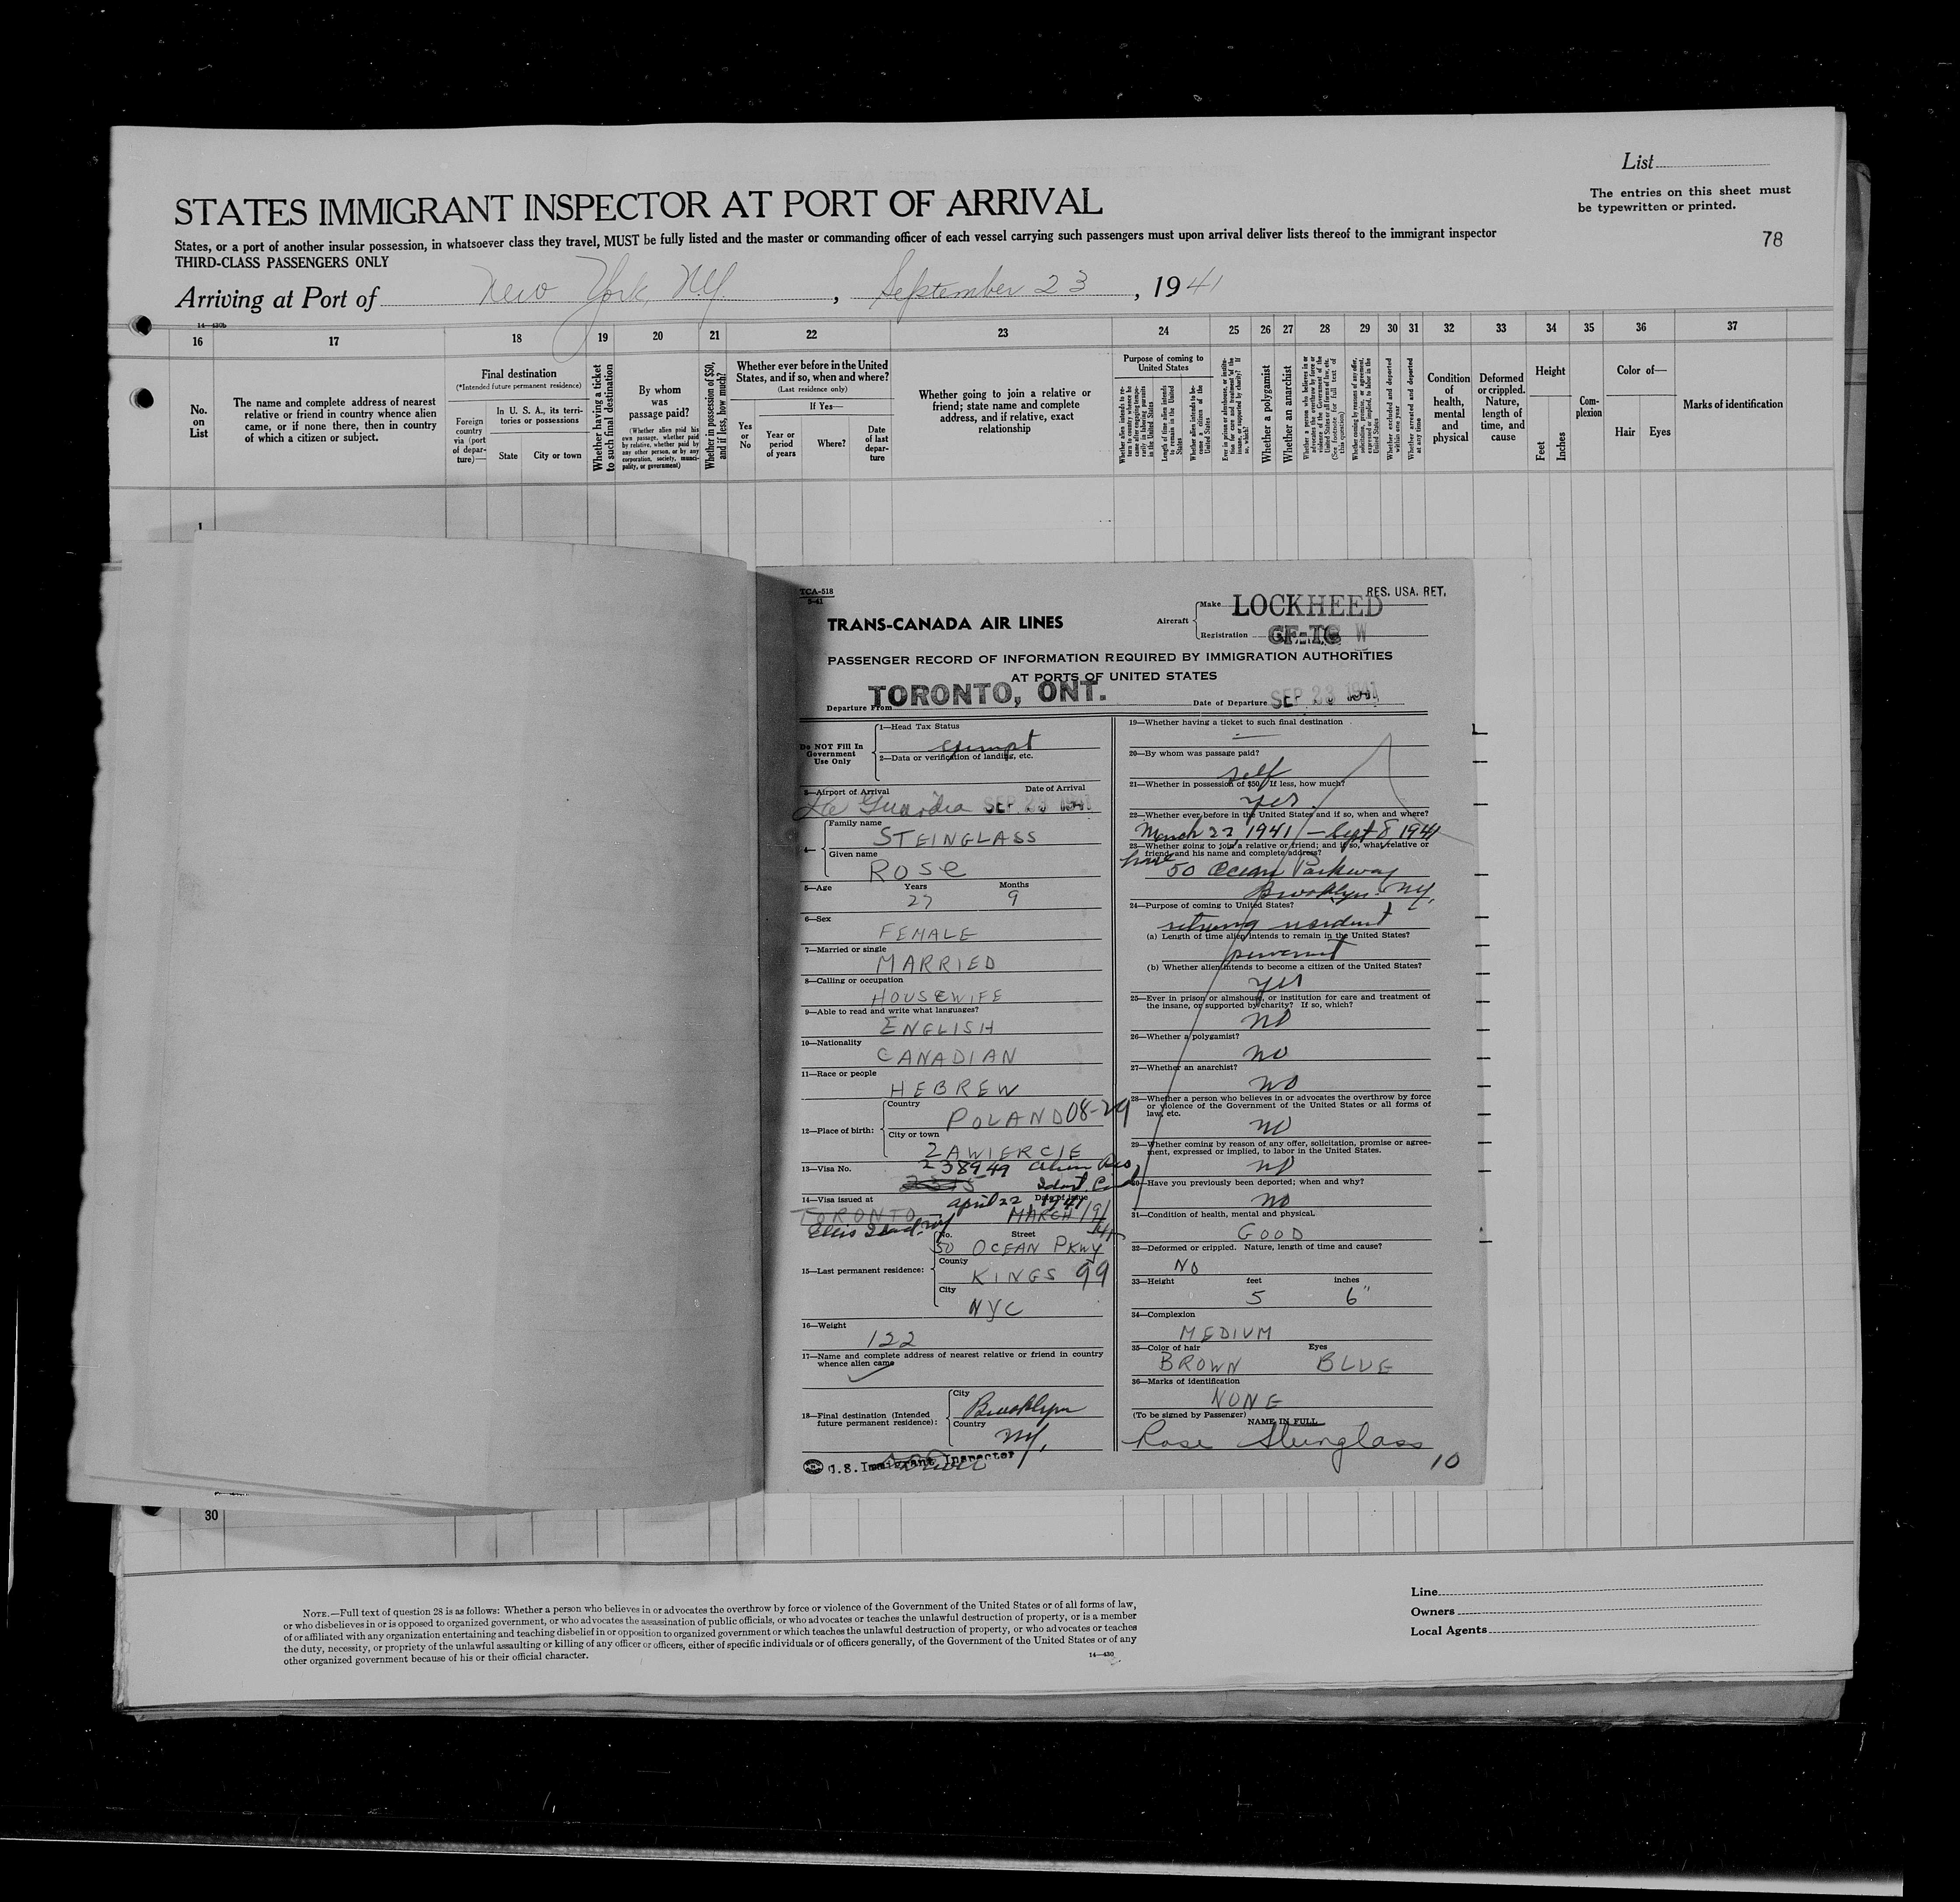 List
The entries on this sheet must
be typewritten or printed.
78
STATES IMMIGRANT INSPECTOR AT PORT OF ARRIVAL
States, or a port of another insular possession, in whatsoever class they travel, MUST be fully listed and the master or commanding officer of each vessel carrying such passengers must upon arrival deliver lists thereof to the immigrant inspector
THIRD-CLASS PASSENGERS ONLY
Arriving at Port of New York, N.Y. , September 23 , 1941
14—430b
16 17 18 19 20 21 22 23 24 25 26 27 28 29 30 31 32 33 34 35 36 37
No. on List
The name and complete address of nearest relative or friend in country whence alien came, or if none there, then in country of which a citizen or subject.
Final destination
(*Intended future permanent residence)
Foreign country via (port of departure)—
In U. S. A., its territories or possessions
State
City or town
Whether having a ticket to such final destination
By whom was passage paid?
(Whether alien paid his own passage, whether paid by relative, whether paid by any other person, or by any corporation, society, municipality, or government)
Whether in possession of $50, and if less, how much?
Whether ever before in the United States, and if so, when and where?
(Last residence only)
If Yes—
Yes or No
Year or period of years
Where?
Date of last departure
Whether going to join a relative or friend; state name and complete address, and if relative, exact relationship
Purpose of coming to United States
Whether alien intends to return to country whence he came after engaging temporarily in laboring pursuits in the United States
Length of time alien intends to remain in the United States
Whether alien intends to become a citizen of the United States
Ever in prison or almshouse, or institution for care and treatment of the insane, or supported by charity? If so, which?
Whether a polygamist
Whether an anarchist
Whether a person who believes in or advocates the overthrow by force or violence of the Government of the United States or all forms of law, etc. (See footnote for full text of this question)
Whether coming by reason of any offer, solicitation, promise, or agreement, expressed or implied, to labor in the United States
Whether excluded and deported within one year
Whether arrested and deported at any time
Condition of health, mental and physical
Deformed or crippled. Nature, length of time, and cause
Height
Feet
Inches
Complexion
Color of—
Hair
Eyes
Marks of identification
1
TCA-518
5-41
RES. USA. RET.
TRANS-CANADA AIR LINES
Aircraft
Make LOCKHEED
Registration CF-TC W
PASSENGER RECORD OF INFORMATION REQUIRED BY IMMIGRATION AUTHORITIES
AT PORTS OF UNITED STATES
Departure From TORONTO, ONT.
Date of Departure SEP 23 1941
Do NOT Fill In
Government
Use Only
1—Head Tax Status
exempt
2—Data or verification of landing, etc.
3—Airport of Arrival Date of Arrival
La Guardia SEP 23 1941
4— Family name
STEINGLASS
Given name
ROSE
5—Age Years Months
27 9
6—Sex
FEMALE
7—Married or single
MARRIED
8—Calling or occupation
HOUSEWIFE
9—Able to read and write what languages?
ENGLISH
10—Nationality
CANADIAN
11—Race or people
HEBREW
12—Place of birth:
Country
POLAND 08-29
City or town
ZAWIERCIE
13—Visa No.
238949 Alien Reg
Ident. Card
14—Visa issued at Date of issue
April 22, 1941
TORONTO MARCH 19/
41
Ellis Island, NY
15—Last permanent residence:
No. Street
50 OCEAN PKWY
County
KINGS 99
City
NYC
16—Weight
122
17—Name and complete address of nearest relative or friend in country
whence alien came
18—Final destination (Intended
future permanent residence):
City
Brooklyn
Country
NY.
U.S. Immigrant Inspector
19—Whether having a ticket to such final destination
20—By whom was passage paid?
self
21—Whether in possession of $50. If less, how much?
yes
22—Whether ever before in the United States and if so, when and where?
March 22 1941 — Sept 8 1941
23—Whether going to join a relative or friend; and if so, what relative or
friend and his name and complete address?
home
50 Ocean Parkway
Brooklyn. NY.
24—Purpose of coming to United States?
returng resident
(a) Length of time alien intends to remain in the United States?
permanent
(b) Whether alien intends to become a citizen of the United States?
yes
25—Ever in prison or almshouse, or institution for care and treatment of
the insane, or supported by charity? If so, which?
no
26—Whether a polygamist?
no
27—Whether an anarchist?
no
28—Whether a person who believes in or advocates the overthrow by force
or violence of the Government of the United States or all forms of
law, etc.
no
29—Whether coming by reason of any offer, solicitation, promise or agree-
ment, expressed or implied, to labor in the United States.
no
30—Have you previously been deported; when and why?
no
31—Condition of health, mental and physical.
GOOD
32—Deformed or crippled. Nature, length of time and cause?
NO
33—Height feet inches
5 6"
34—Complexion
MEDIUM
35—Color of hair Eyes
BROWN BLUE
36—Marks of identification
NONE
(To be signed by Passenger) NAME IN FULL
Rose Steinglass
10
30
NOTE.—Full text of question 28 is as follows: Whether a person who believes in or advocates the overthrow by force or violence of the Government of the United States or of all forms of law,
or who disbelieves in or is opposed to organized government, or who advocates the assassination of public officials, or who advocates or teaches the unlawful destruction of property, or is a member
of or affiliated with any organization entertaining and teaching disbelief in or opposition to organized government or which teaches the unlawful destruction of property, or who advocates or teaches
the duty, necessity, or propriety of the unlawful assaulting or killing of any officer or officers, either of specific individuals or of officers generally, of the Government of the United States or of any
other organized government because of his or their official character.
14—430
Line
Owners
Local Agents